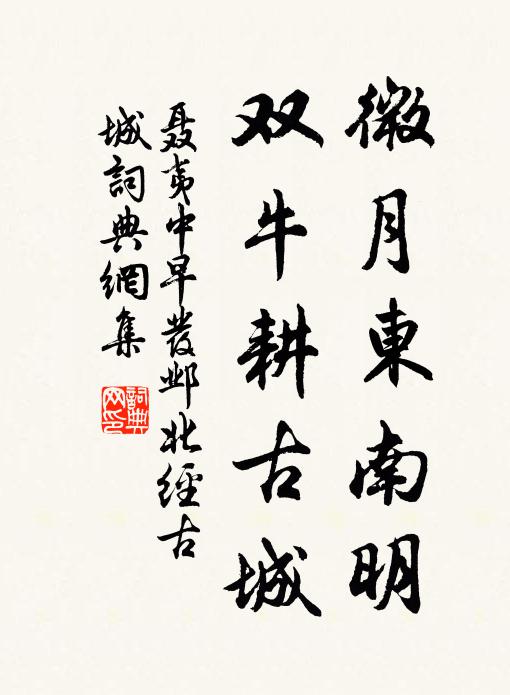 微月東南明
双牛耕古城
聂夷中早發邺北經古
城詞典網集
詞典
网印